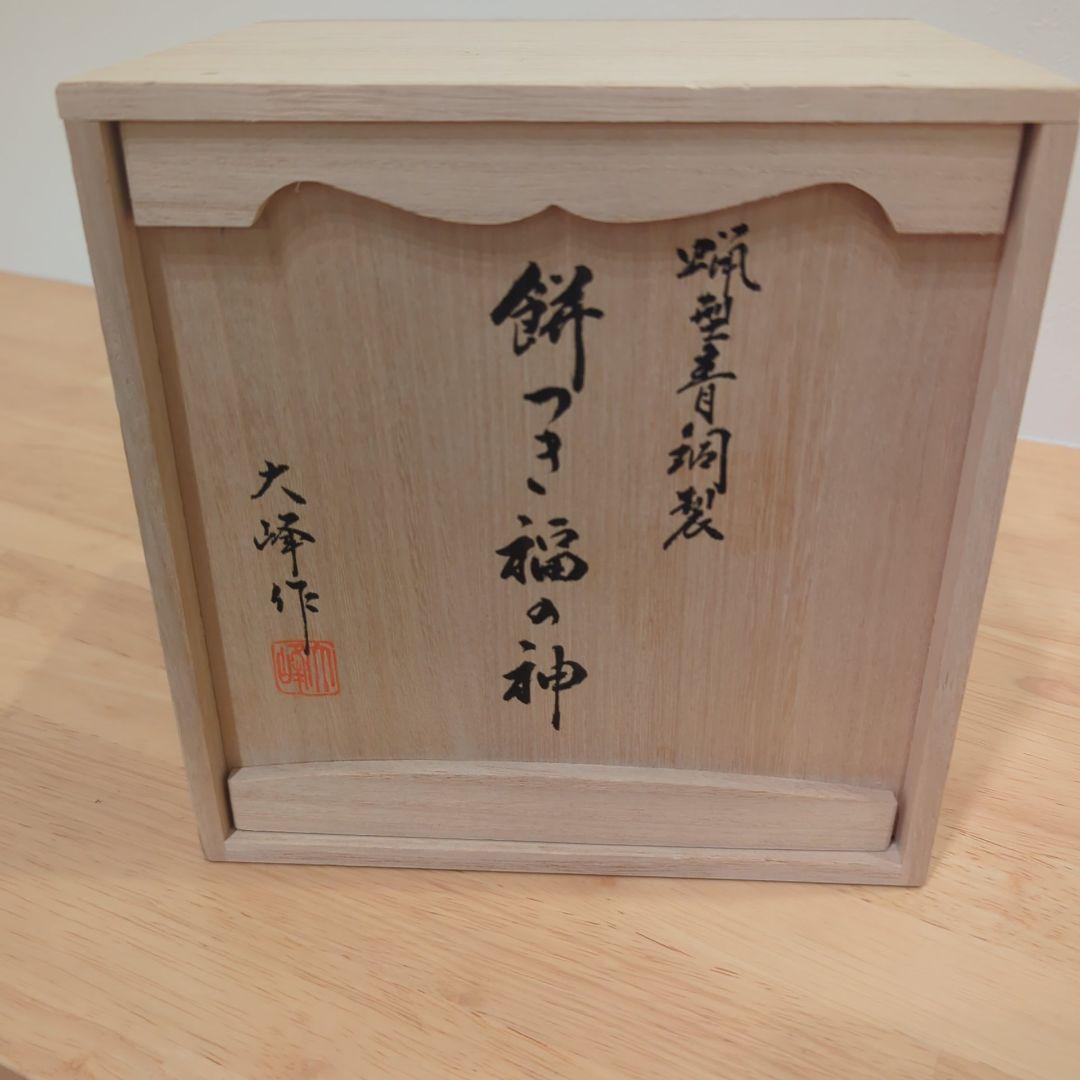 蝋型青銅製
餅つき福の神
大峰作
大峰